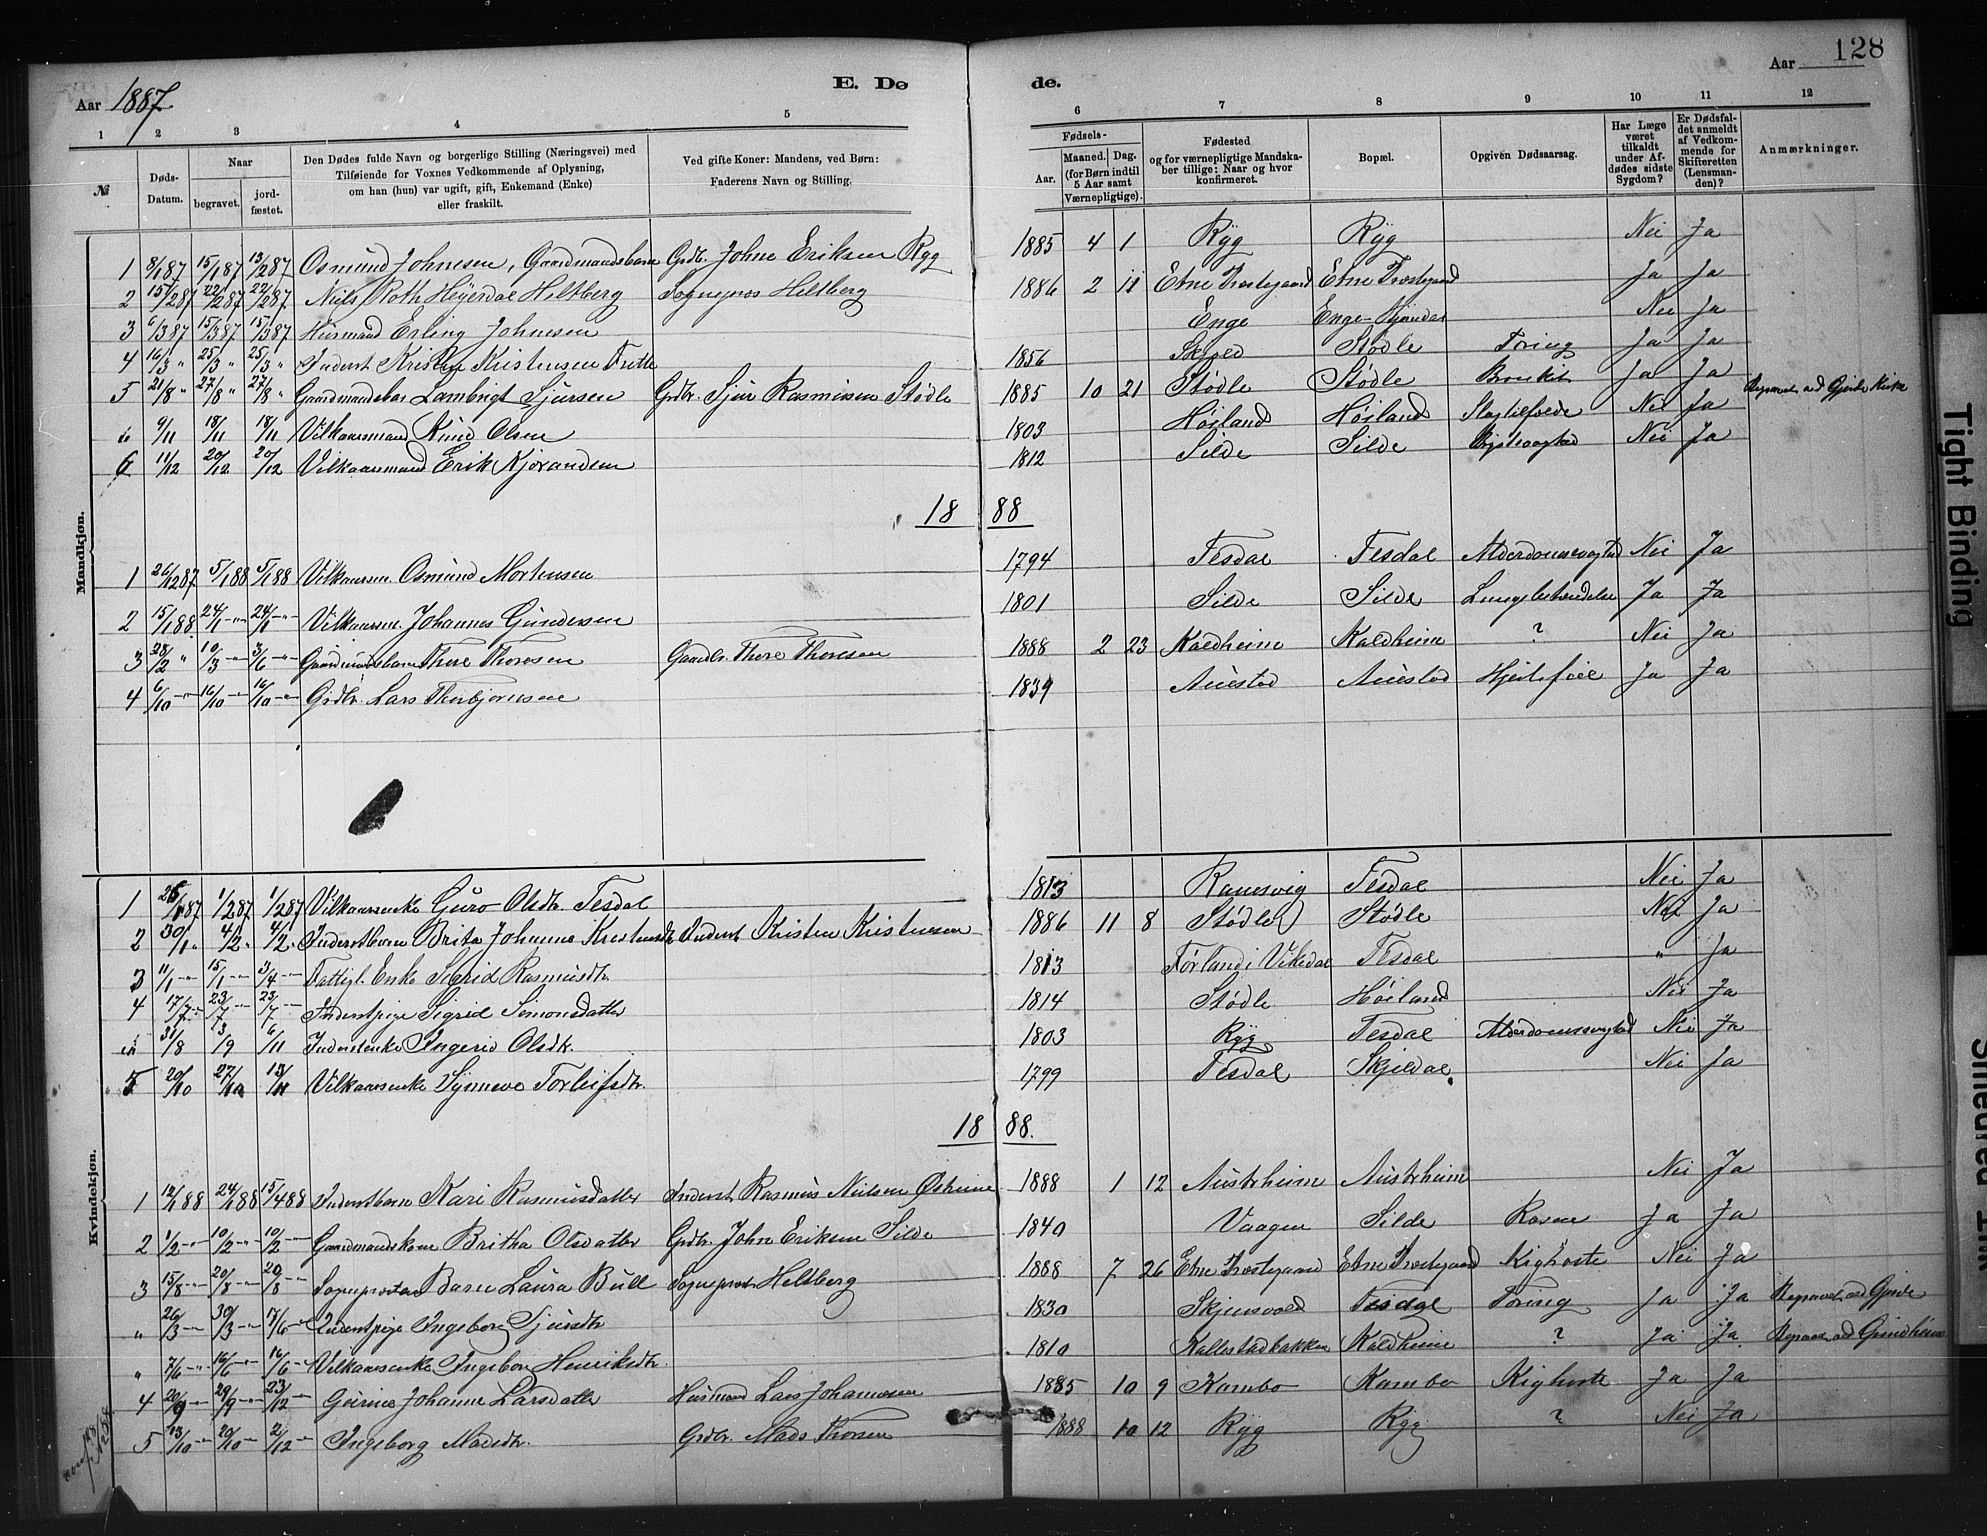 Aar 1887.
E. Dø de.
Aar 128
1 2 3 4 5 6 7 8 9 10 11 12
№
Døds-Datum.
Naar begravet. jord-fæstet.
Den Dødes fulde Navn og borgerlige Stilling (Næringsvei) med Tilføiende for Voxnes Vedkommende af Oplysning, om han (hun) var ugift, gift, Enkemand (Enke) eller fraskilt.
Ved gifte Koner: Mandens, ved Børn: Faderens Navn og Stilling.
Fødsels- Aar. Maaned. Dag. (for Børn indtil 5 Aar samt Værnepligtige).
Fødested og for værnepligtige Mandska-ber tillige: Naar og hvor konfirmeret.
Bopæl.
Opgiven Dødsaarsag.
Har Læge været tilkaldt under Af-dødes sidste Sygdom?
Er Dødsfal-det anmeldt af Vedkom-mende for Skifteretten (Lensman-den)?
Anmærkninger.
Mandkjøn.
1 8/1 87 15/1 87 13/2 87 Osmund Johnesen, Gaardmandsbarn Grdbr. Johne Eriksen Ryg 1885 4 1 Ryg Ryg Nei Ja
2 15/2 87 22/2 87 22/2 87 Niels Roth Heyerdal Heltberg Sognepres Heltberg 1886 2 11 Etne Præstegaard Etne Præstegaard Ja Ja
3 6/3 87 15/3 87 15/3 87 Husmand Erling Johnesen Enge Enge Nei Ja
4 16/3 " 25/3 " 25/3 " Inderst Kristen Kristensen 1856 Skjold Stødle Tæring Ja Ja
5 21/8 " 27/8 " 27/8 " Gaardmandsbar Lambrigt Sjursen Grdbr. Sjur Rasmusen Stødle 1885 10 21 Stødle Stødle Bronkit Ja Ja Begravet ved Gjerde Kirke
9/11 18/11 18/11 Vilkaarsmand Knud Olsen 1803 Høiland Høiland Slagtilfælde Nei Ja
6 11/12 20/12 20/12 Vilkaarsmand Erik Kjørandsen 1812 Silde Silde Nei Ja
18 88
1 26/12 87 5/1 88 5/1 88 Vilkaarsm. Osmund Mortensen 1794 Tesdal Tesdal Alderdomssvaghed Nei Ja
2 15/1 88 24/1 -"- 24/1 -"- Vilkaarsm. Johannes Gundersen 1801 Silde Silde Lungebetændelse Ja Ja
3 28/2 " 10/3 -"- 3/6 -"- Gaardmandsbarn Thore Thoresen Gaardbr. Thore Thoresen 1888 2 23 Kaldheim Kaldheim ? Nei Ja
4 6/10 -"- 16/10 -"- 16/10 -"- Grdbr. Lars Thorbjørnsen 1839 Austad Austad Hjertefeil Ja Ja
Kvindekjøn.
1 25/1 87 1/2 87 1/2 87 Vilkaarsenke Guro Olsdtr. Tesdal 1813 Ramsvig Tesdal Nei Ja
2 30/1 " 4/2 " 4/2 " Inderstbarn Brita Johanne Kristensdtr Inderst Kristen Kristensen 1886 11 8 Stødle Stødle Nei Ja
3 11/1 -"- 15/1 -"- 3/4 -"- Fattigl. Enke Sigrid Rasmusdtr. 1813 Førland i Vikedal Tesdal " Ja
4 17/7 -"- 23/7 -"- 23/7 -"- Inderstpige Sigrid Simonsdatter 1814 Stødle Høiland Nei Ja
31/8 3/9 6/11 Inderstenke Ingerid Olsdtr. 1803 Ryg Tesdal Alderdomssvaghed Nei Ja
5 20/10 27/10 13/11 Vilkaarsenke Synneve Torleifsdtr. 1799 Tesdal Skjeldal Nei Ja
18 88.
1 12/1 88 24/1 88 15/4 88 Inderstbarn Kari Rasmusdatter Inderst Rasmus Nielsen Østreim 1888 1 12 Austrheim Austrheim Nei Ja
2 1/2 -"- 10/2 -"- 10/2 -"- Gaardmandskone Britha Olsdatter Grdbr. John Eriksen Silde 1840 Vaagen Silde Rosen Ja Ja
3 15/8 -"- 20/8 -"- 20/8 -"- Barn Laura Bull Sogneprest Heltberg 1888 7 26 Etne Præstegaard Etne Præstegaard Kighoste Nei Ja
" 26/3 -"- 30/3 -"- 17/6 -"- Inderstpige Ingeborg Sjursdtr 1830 Skjensvold Tesdal Tæring Ja Ja Begravet ved Gjerde
" 7/6 -"- 16/6 -"- 16/6 -"- Vilkaarsenke Ingebor Henriksdtr. 1810 Kallestadbakken Kaldheim ? Ja Ja Begravet ved Grindheim
4 20/9 -"- 29/9 -"- 23/12 -"- Gurine Johanne Larsdatter Husmand Lars Johannesen 1885 10 9 Kambo Kambo Kighoste Ja Ja
5 13/10 -"- 20/10 -"- 2/12 -"- Ingeborg Madsdtr. Grdbr. Mads Thorsen 1888 10 12 Ryg Ryg ? Nei Ja
Tight Binding
Smeared Ink